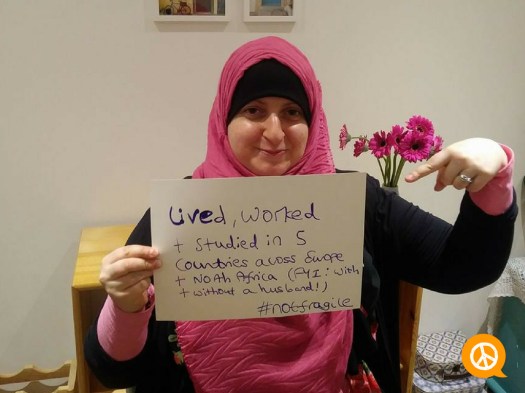 Lived, worked
+ Studied in 5
Countries across Europe
+ NOAh Africa (FYI: with
+ without a husband!)
#notfragile